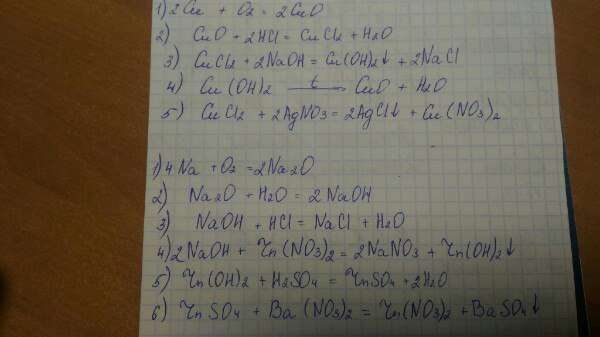 1) 2Cu + O2 = 2CuO
2) CuO + 2HCl = CuCl2 + H2O
3) CuCl2 + 2NaOH = Cu(OH)2↓ + 2NaCl
4) Cu(OH)2 —t→ CuO + H2O
5) CuCl2 + 2AgNO3 = 2AgCl↓ + Cu(NO3)2
1) 4Na + O2 = 2Na2O
2) Na2O + H2O = 2NaOH
3) NaOH + HCl = NaCl + H2O
4) 2NaOH + Zn(NO3)2 = 2NaNO3 + Zn(OH)2↓
5) Zn(OH)2 + H2SO4 = ZnSO4 + 2H2O
6) ZnSO4 + Ba(NO3)2 = Zn(NO3)2 + BaSO4↓